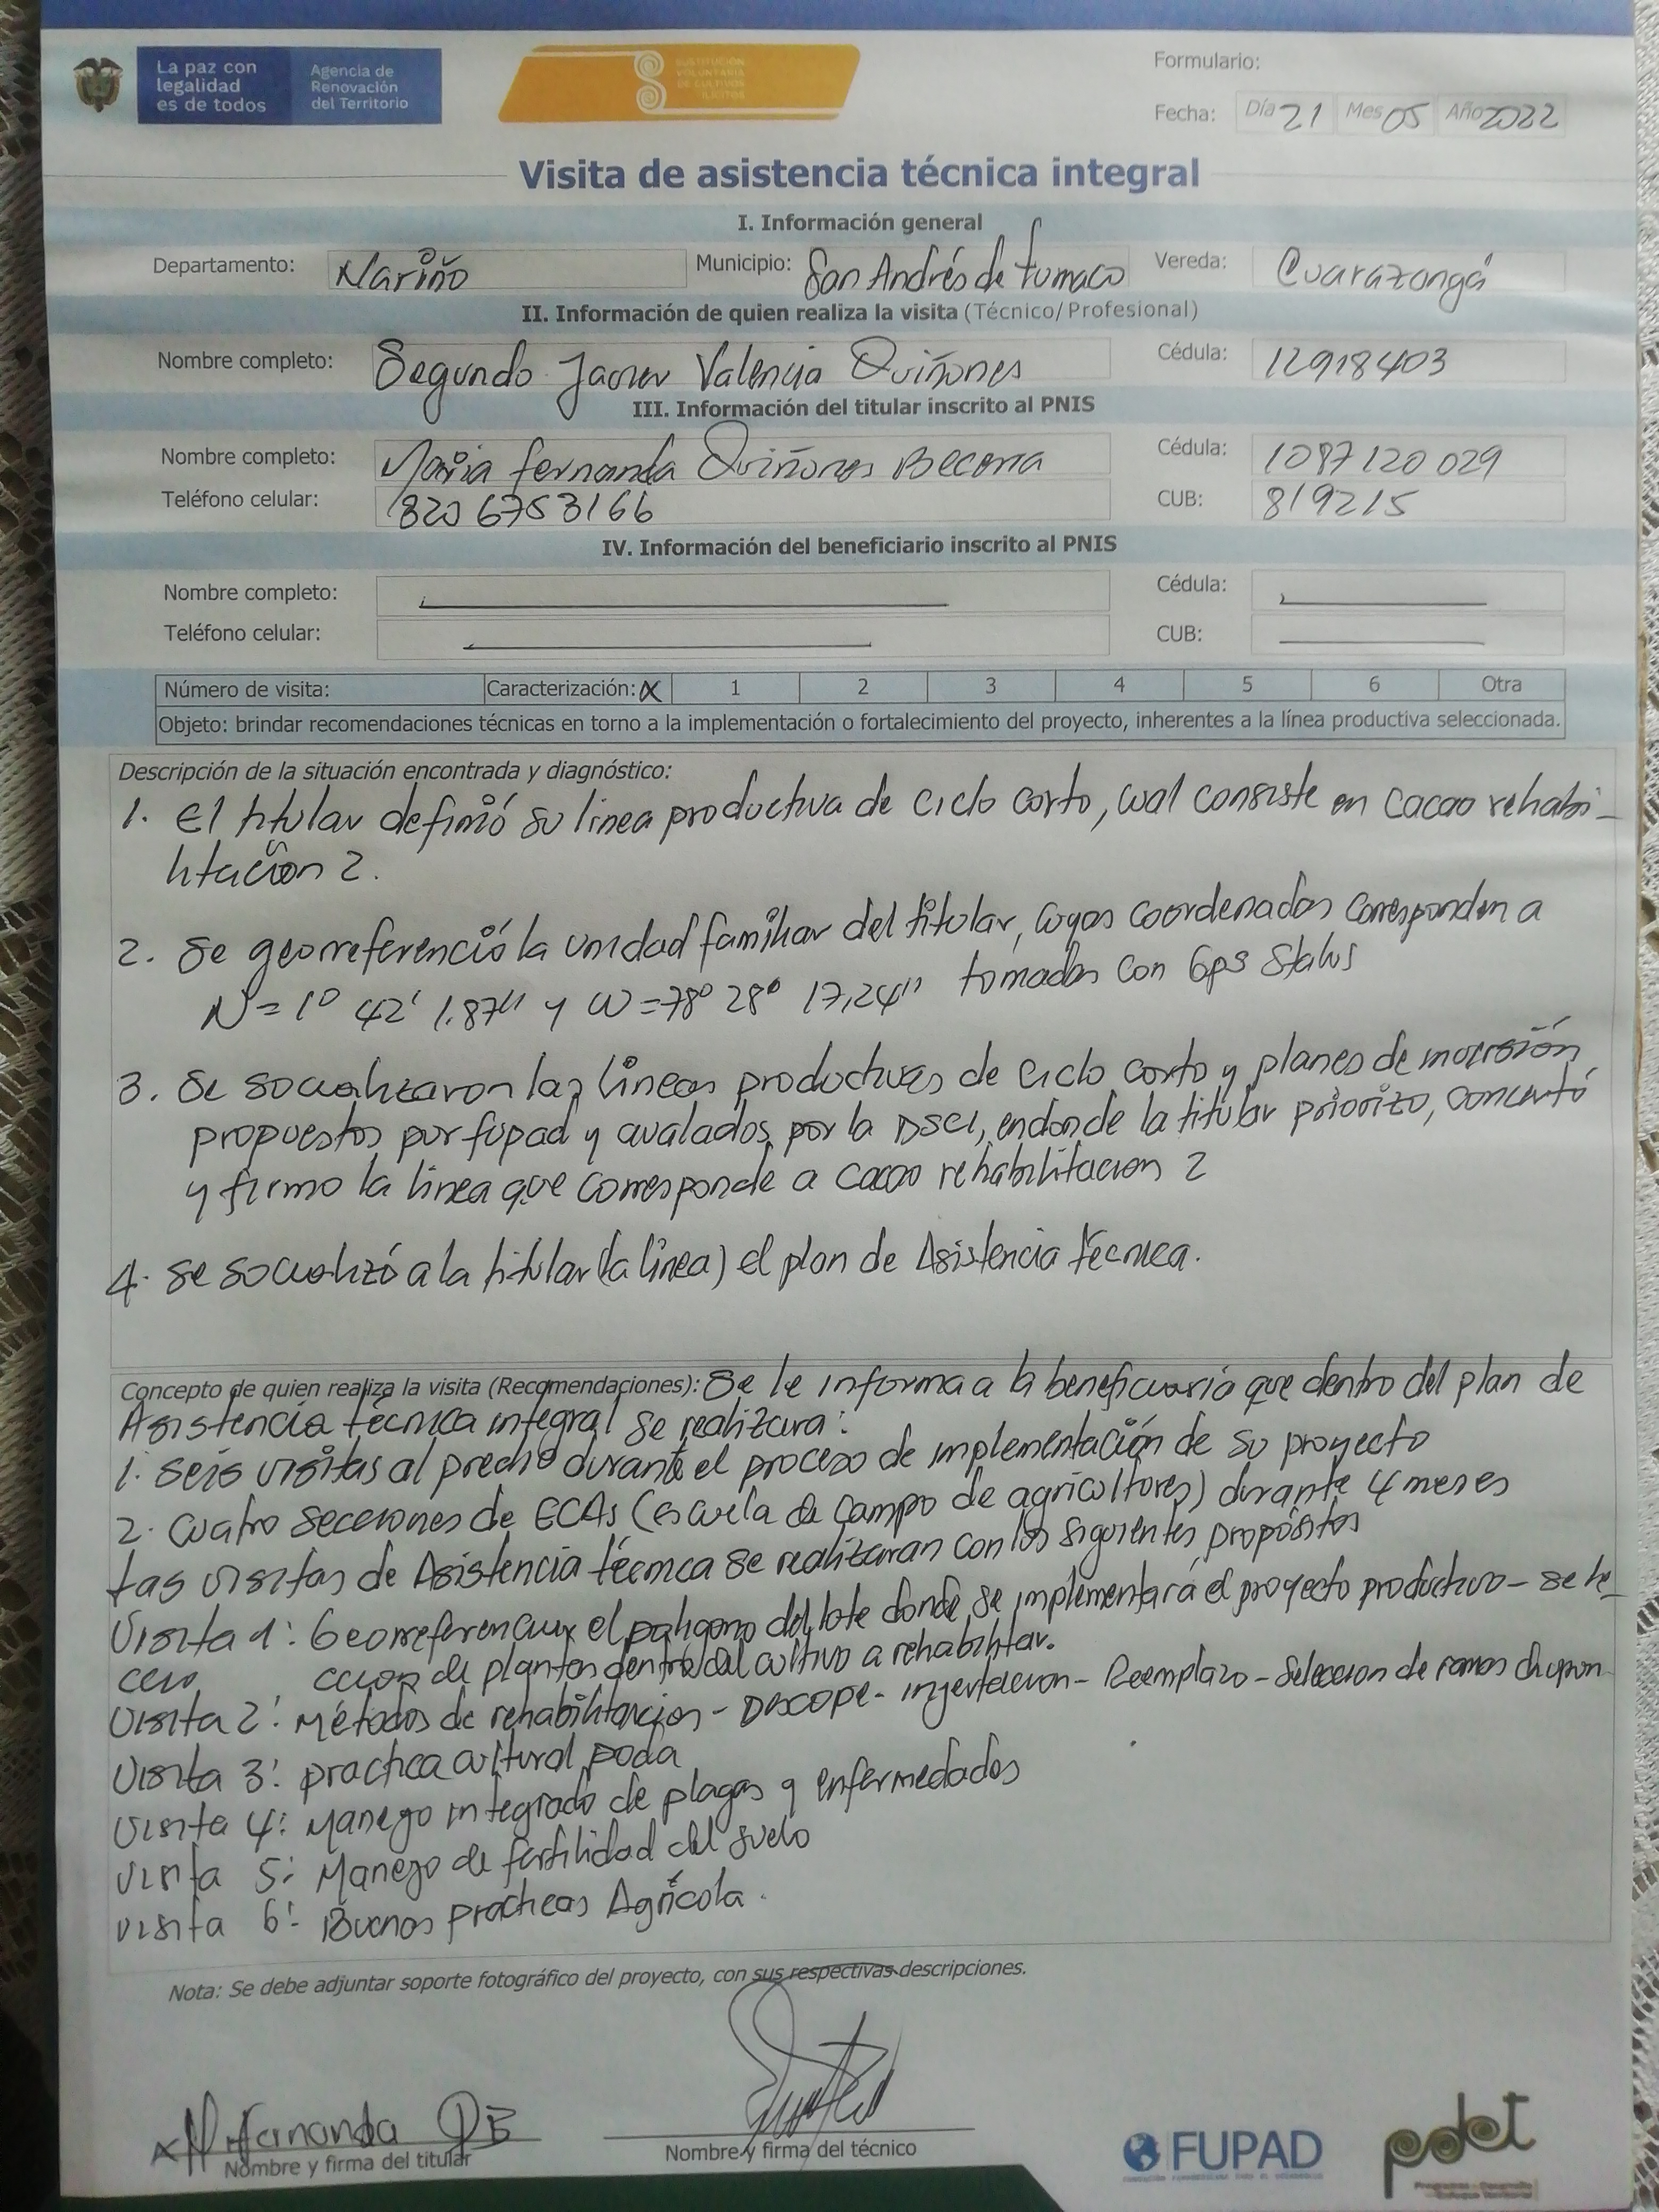 La paz con
legalidad
es de todos
Agencia de
Renovación
del Territorio
SUSTITUCIÓN
VOLUNTARIA
DE CULTIVOS
ILÍCITOS
Formulario:
Fecha: Día 21 Mes 05 Año 2022
Visita de asistencia técnica integral
I. Información general
Departamento: Nariño Municipio: San Andrés de tumaco Vereda: Cuarazangá
II. Información de quien realiza la visita (Técnico/Profesional)
Nombre completo: Segundo Javier Valencia Quiñones Cédula: 12918403
III. Información del titular inscrito al PNIS
Nombre completo: Maria fernanda Quiñones Becerra Cédula: 1087120029
Teléfono celular: 6753166 CUB: 819215
IV. Información del beneficiario inscrito al PNIS
Nombre completo: Cédula:
Teléfono celular: CUB:
Número de visita: Caracterización: X 1 2 3 4 5 6 Otra
Objeto: brindar recomendaciones técnicas en torno a la implementación o fortalecimiento del proyecto, inherentes a la línea productiva seleccionada.
Descripción de la situación encontrada y diagnóstico:
1. El titular definió su linea productiva de ciclo corto, cual consiste en cacao rehabi-
litación 2.
2. Se georreferenció la unidad familiar del titular, cuyas coordenadas corresponden a
N = 1° 42' 1.87" y W = 78° 28° 17,24" tomadas con Gps Status
3. Se socializaron las lineas productivas de ciclo corto y planes de inversión
propuestos por fupad y avalados por la DSCI, endonde la titular priorizo, concertó
y firmo la linea que corresponde a cacao rehabilitacion 2
4. Se socializó a la titular (la linea) el plan de Asistencia técnica.
Concepto de quien realiza la visita (Recomendaciones): Se le informa a la beneficiaria que dentro del plan de
Asistencia técnica integral se realizara:
1. Seis visitas al predio durante el proceso de implementación de su proyecto
2. Cuatro secciones de ECAs (escuela de campo de agricultores) durante 4 meses
Las visitas de Asistencia técnica se realizaran con los siguientes propósitos
Visita 1: Georreferenciar el poligono del lote donde se implementará el proyecto productivo - se le
ccion de plantas dentro del cultivo a rehabilitar.
Visita 2: Métodos de rehabilitacion - Descope - injertacion - Reemplazo - Seleccion de ramas chupon
Visita 3: practica cultural poda
Visita 4: Manejo integrado de plagas y enfermedades
Visita 5: Manejo de fertilidad del suelo
Visita 6: Buenas practicas Agrícola.
Nota: Se debe adjuntar soporte fotográfico del proyecto, con sus respectivas descripciones.
Mfernanda QB
Nombre y firma del titular
Nombre y firma del técnico
FUPAD
pdet